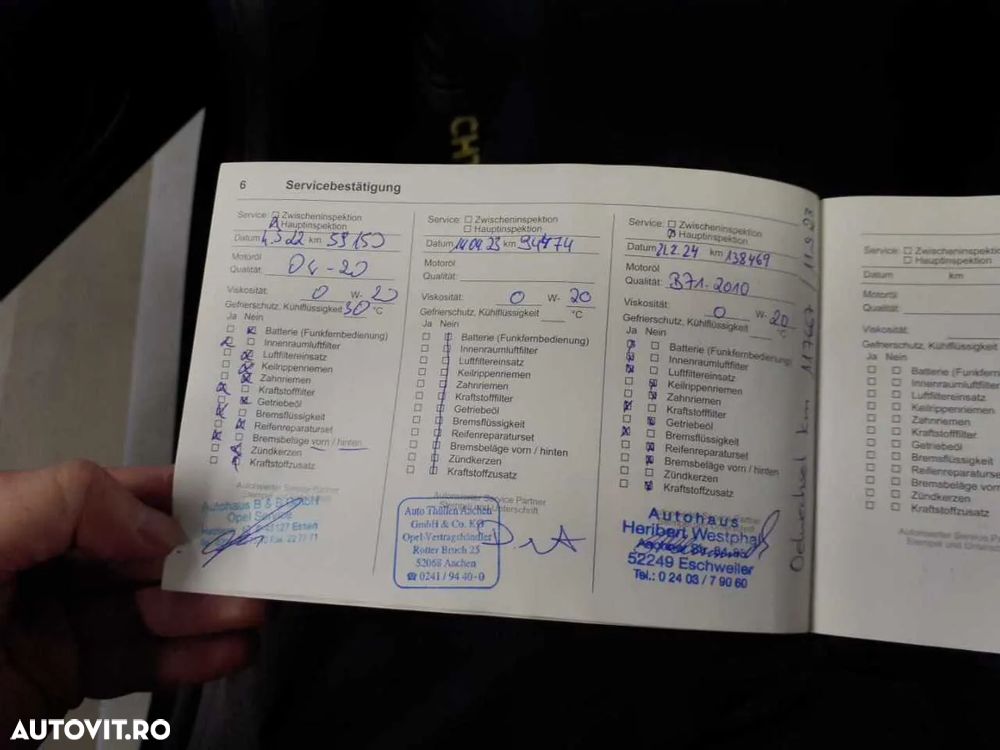 CHT
6 Servicebestätigung
Service: Zwischeninspektion
Hauptinspektion
Datum 4.3.22 km 59150
Motoröl
Qualität: 04-20
Viskosität: 0 W- 20
Gefrierschutz, Kühlflüssigkeit 30 °C
Ja Nein
Batterie (Funkfernbedienung)
Innenraumluftfilter
Luftfiltereinsatz
Keilrippenriemen
Zahnriemen
Kraftstofffilter
Getriebeöl
Bremsflüssigkeit
Reifenreparaturset
Bremsbeläge vorn / hinten
Zündkerzen
Kraftstoffzusatz
Autorisierter Service Partner
Autohaus B & B GmbH
Opel Service
45127 Essen
Service: Zwischeninspektion
Hauptinspektion
Datum 14.04.23 km 94774
Motoröl
Qualität:
Viskosität: 0 W- 20
Gefrierschutz, Kühlflüssigkeit °C
Ja Nein
Batterie (Funkfernbedienung)
Innenraumluftfilter
Luftfiltereinsatz
Keilrippenriemen
Zahnriemen
Kraftstofffilter
Getriebeöl
Bremsflüssigkeit
Reifenreparaturset
Bremsbeläge vorn / hinten
Zündkerzen
Kraftstoffzusatz
Autorisierter Service Partner
Stempel und Unterschrift
Auto Thüllen Aachen
GmbH & Co. KG
Opel-Vertragshändler
Rotter Bruch 25
52068 Aachen
☎ 0241 / 94 40-0
Service: Zwischeninspektion
Hauptinspektion
Datum 21.2.24 km 138469
Motoröl
Qualität: B71-2010
Viskosität: 0 W- 20
Gefrierschutz, Kühlflüssigkeit °C
Ja Nein
Batterie (Funkfernbedienung)
Innenraumluftfilter
Luftfiltereinsatz
Keilrippenriemen
Zahnriemen
Kraftstofffilter
Getriebeöl
Bremsflüssigkeit
Reifenreparaturset
Bremsbeläge vorn / hinten
Zündkerzen
Kraftstoffzusatz
Service Partner
Autohaus
Heribert Westphal
52249 Eschweiler
Tel.: 0 24 03 / 7 90 60
Oelwechsel km 117667 / 11.9.23
Service: Zwischeninspektion
Hauptinspektion
Datum km
Motoröl
Qualität:
Viskosität:
Gefrierschutz, Kühlflüssigkeit
Ja Nein
Batterie (Funkfern
Innenraumluftfilter
Luftfiltereinsatz
Keilrippenriemen
Zahnriemen
Kraftstofffilter
Getriebeöl
Bremsflüssigkeit
Reifenreparaturset
Bremsbeläge vorn
Zündkerzen
Kraftstoffzusatz
Autorisierter Service P
Stempel und Unters
AUTOVIT.RO